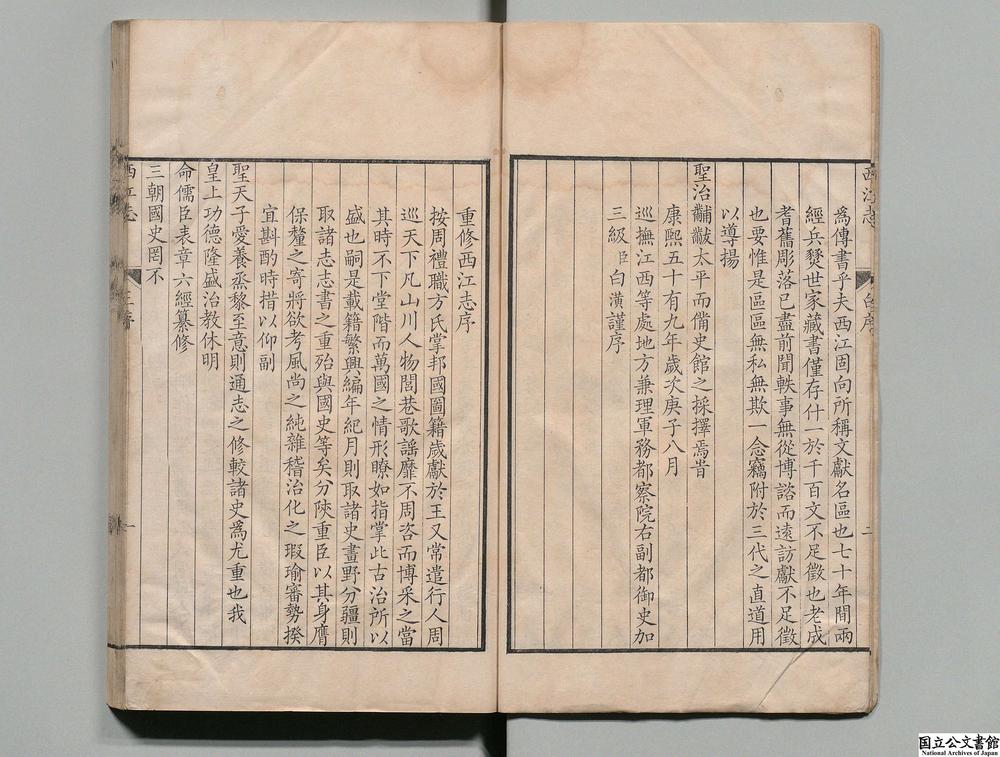 西江志
白序
二
為傳書乎夫西江固向所稱文獻名區也七十年間兩
經兵燹世家藏書僅存什一於千百文不足徵也老成
耆舊彫落已盡前聞軼事無從博諮而遠訪獻不足徵
也要惟是區區無私無欺一念竊附於三代之直道用
以導揚
聖治黼黻太平而備史館之採擇焉旹
康熙五十有九年歲次庚子八月
巡撫江西等處地方兼理軍務都察院右副都御史加
三級臣白潢謹序
重修西江志序
按周禮職方氏掌邦國圖籍歲獻於王又常遣行人周
巡天下凡山川人物閭巷歌謡靡不周咨而博采之當
其時不下堂階而萬國之情形瞭如指掌此古治所以
盛也嗣是載籍繁興編年紀月則取諸史畫野分疆則
取諸志志書之重殆與國史等矣分陝重臣以其身膺
保釐之寄將欲考風尚之純雜稽治化之瑕瑜審勢揆
宜斟酌時措以仰副
聖天子愛養烝黎至意則通志之修較諸史為尤重也我
皇上功德隆盛治教休明
命儒臣表章六經纂修
三朝國史罔不
西江志
序
一
国立公文書館
National Archives of Japan